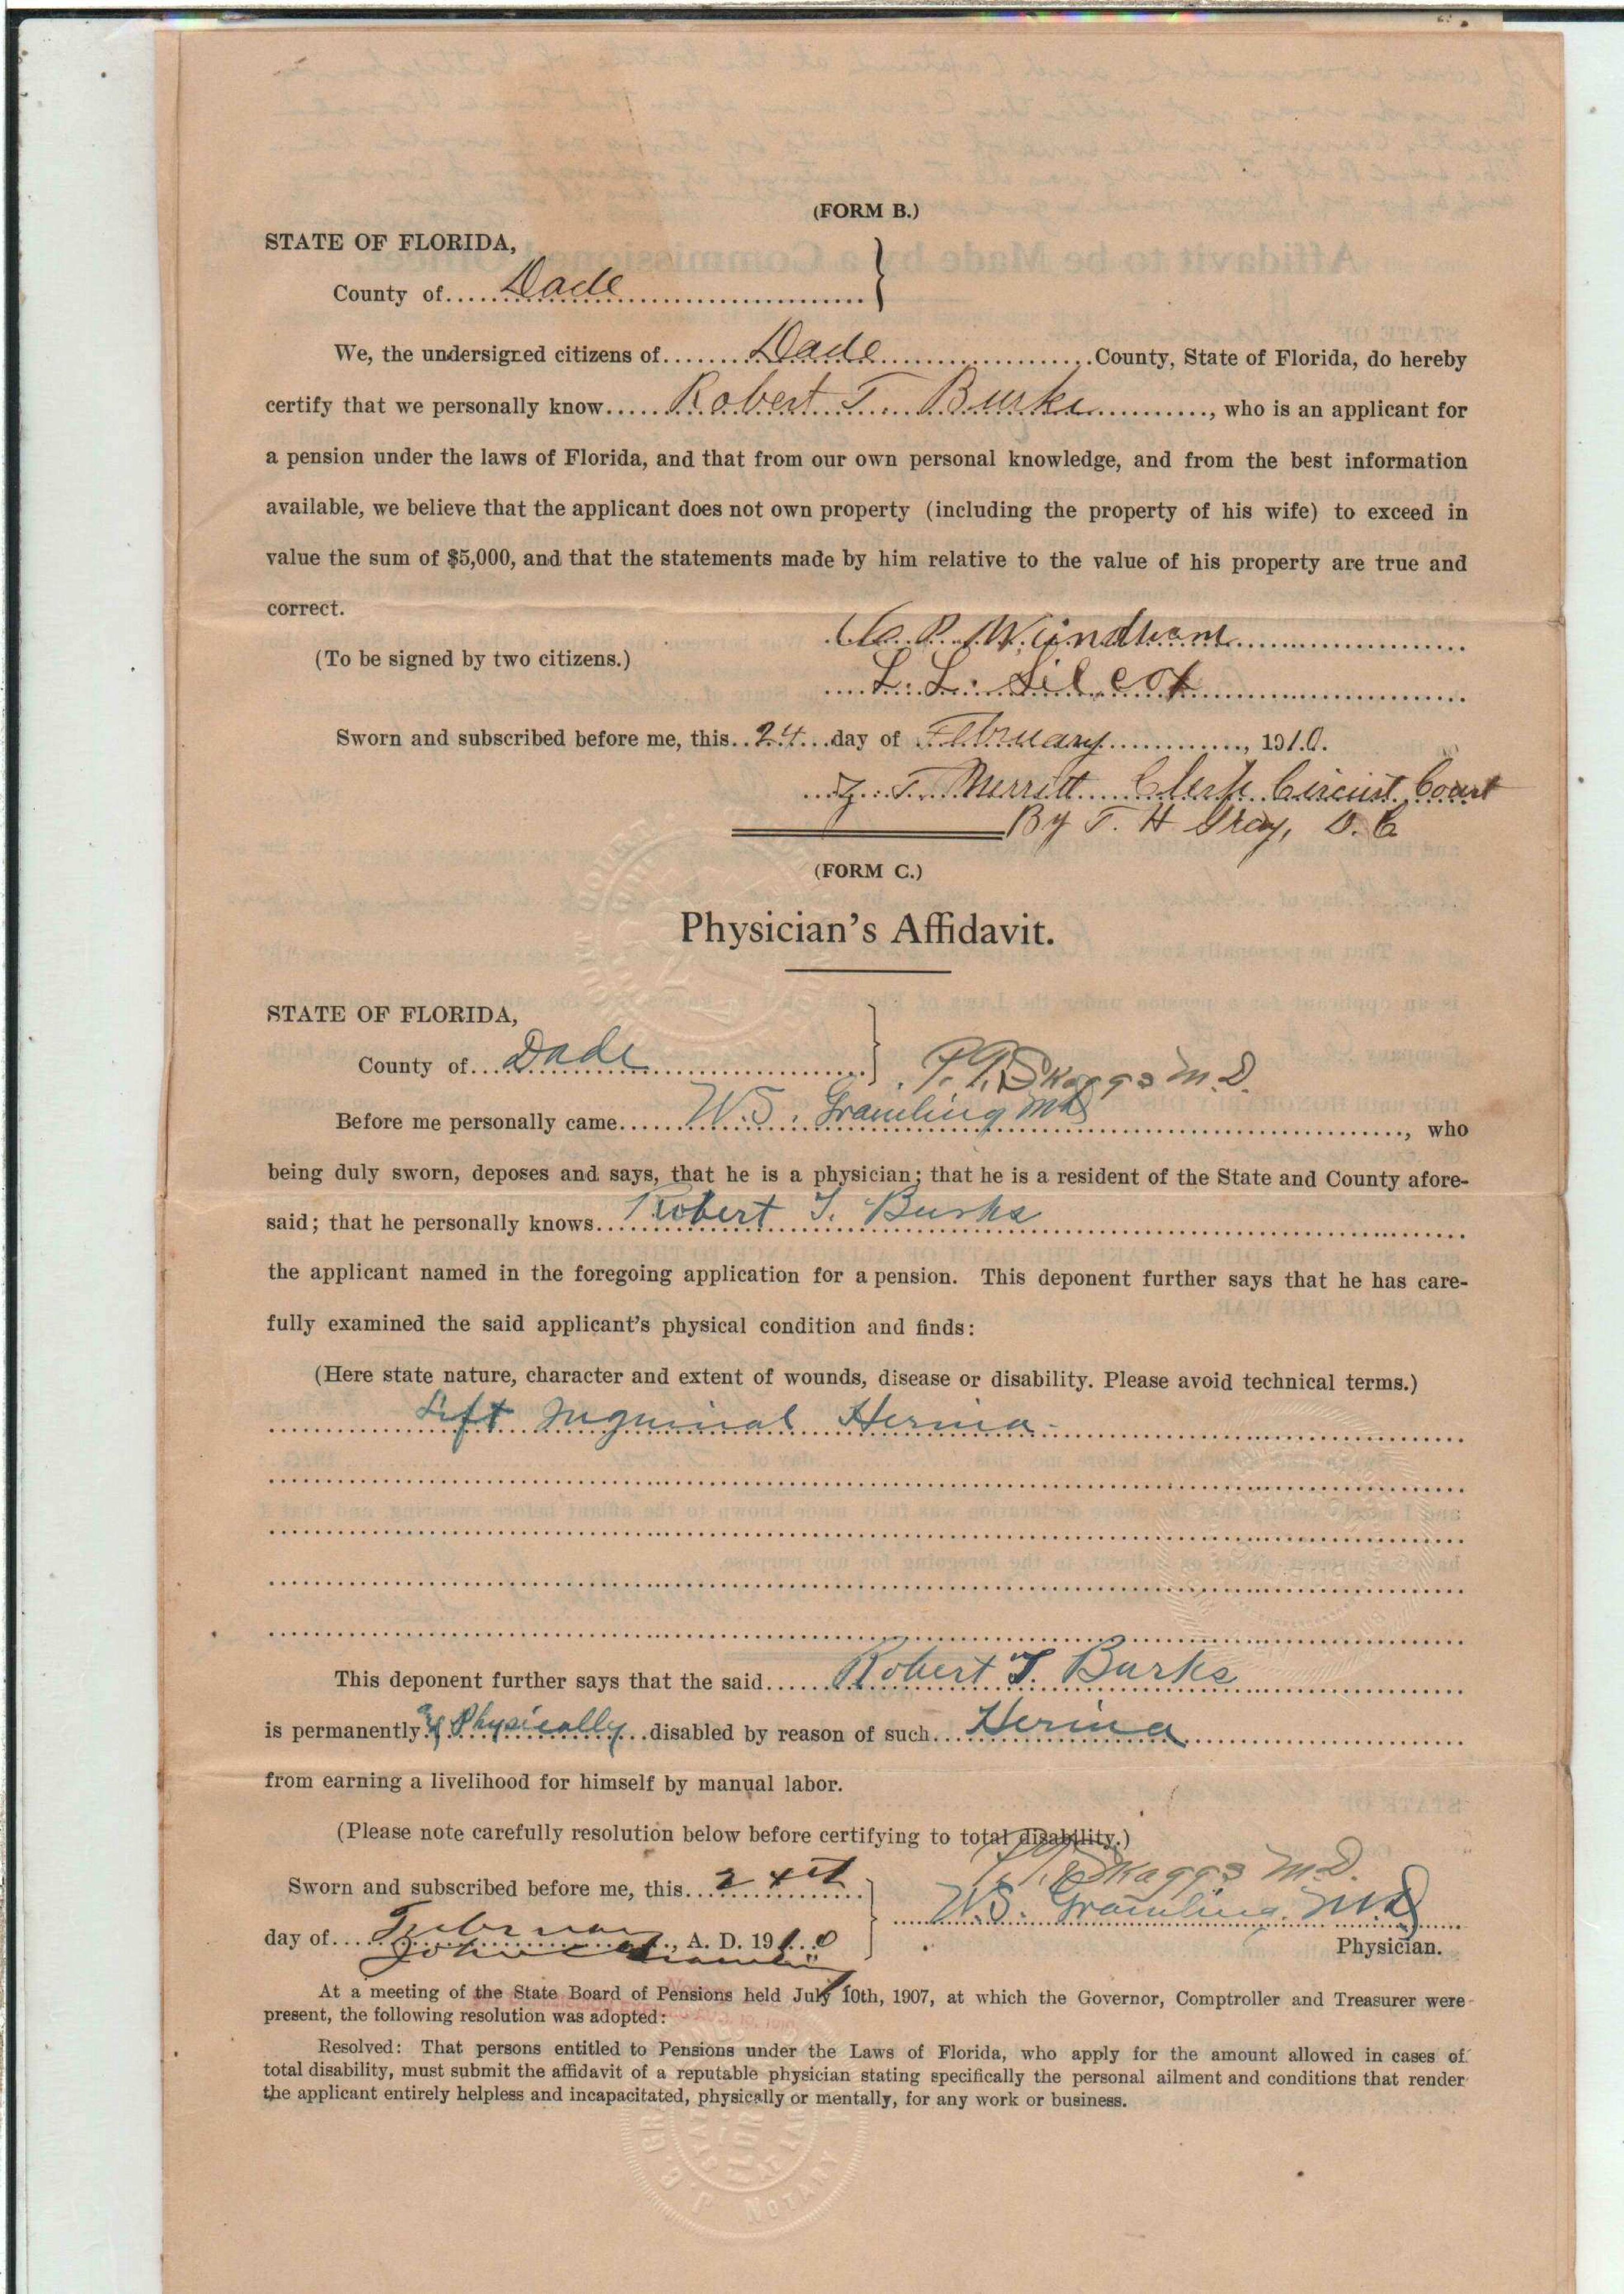 (FORM B.)
STATE OF FLORIDA,
County of Dade
We, the undersigned citizens of Dade County, State of Florida, do hereby
certify that we personally know Robert T. Burks, who is an applicant for
a pension under the laws of Florida, and that from our own personal knowledge, and from the best information
available, we believe that the applicant does not own property (including the property of his wife) to exceed in
value the sum of $5,000, and that the statements made by him relative to the value of his property are true and
correct.
P. Windham
(To be signed by two citizens.)
L. L. Silcox
Sworn and subscribed before me, this 24 day of February, 1910.
Z. T. Merritt Clerk Circuit Court
By T. H Gray, D. C
(FORM C.)
Physician's Affidavit.
STATE OF FLORIDA,
County of Dade
Skaggs M.D.
Before me personally came W.S. Gramling MD, who
being duly sworn, deposes and says, that he is a physician; that he is a resident of the State and County afore-
said; that he personally knows Robert T. Burks
the applicant named in the foregoing application for a pension. This deponent further says that he has care-
fully examined the said applicant's physical condition and finds:
(Here state nature, character and extent of wounds, disease or disability. Please avoid technical terms.)
Left Inguinal Hernia
This deponent further says that the said Robert T. Burks
is permanently & Physically disabled by reason of such Hernia
from earning a livelihood for himself by manual labor.
(Please note carefully resolution below before certifying to total disability.)
Skaggs M.D.
Sworn and subscribed before me, this 24th
W.S. Gramling MD
day of February, A. D. 1910
Physician.
At a meeting of the State Board of Pensions held July 10th, 1907, at which the Governor, Comptroller and Treasurer were
present, the following resolution was adopted:
Resolved: That persons entitled to Pensions under the Laws of Florida, who apply for the amount allowed in cases of
total disability, must submit the affidavit of a reputable physician stating specifically the personal ailment and conditions that render
the applicant entirely helpless and incapacitated, physically or mentally, for any work or business.